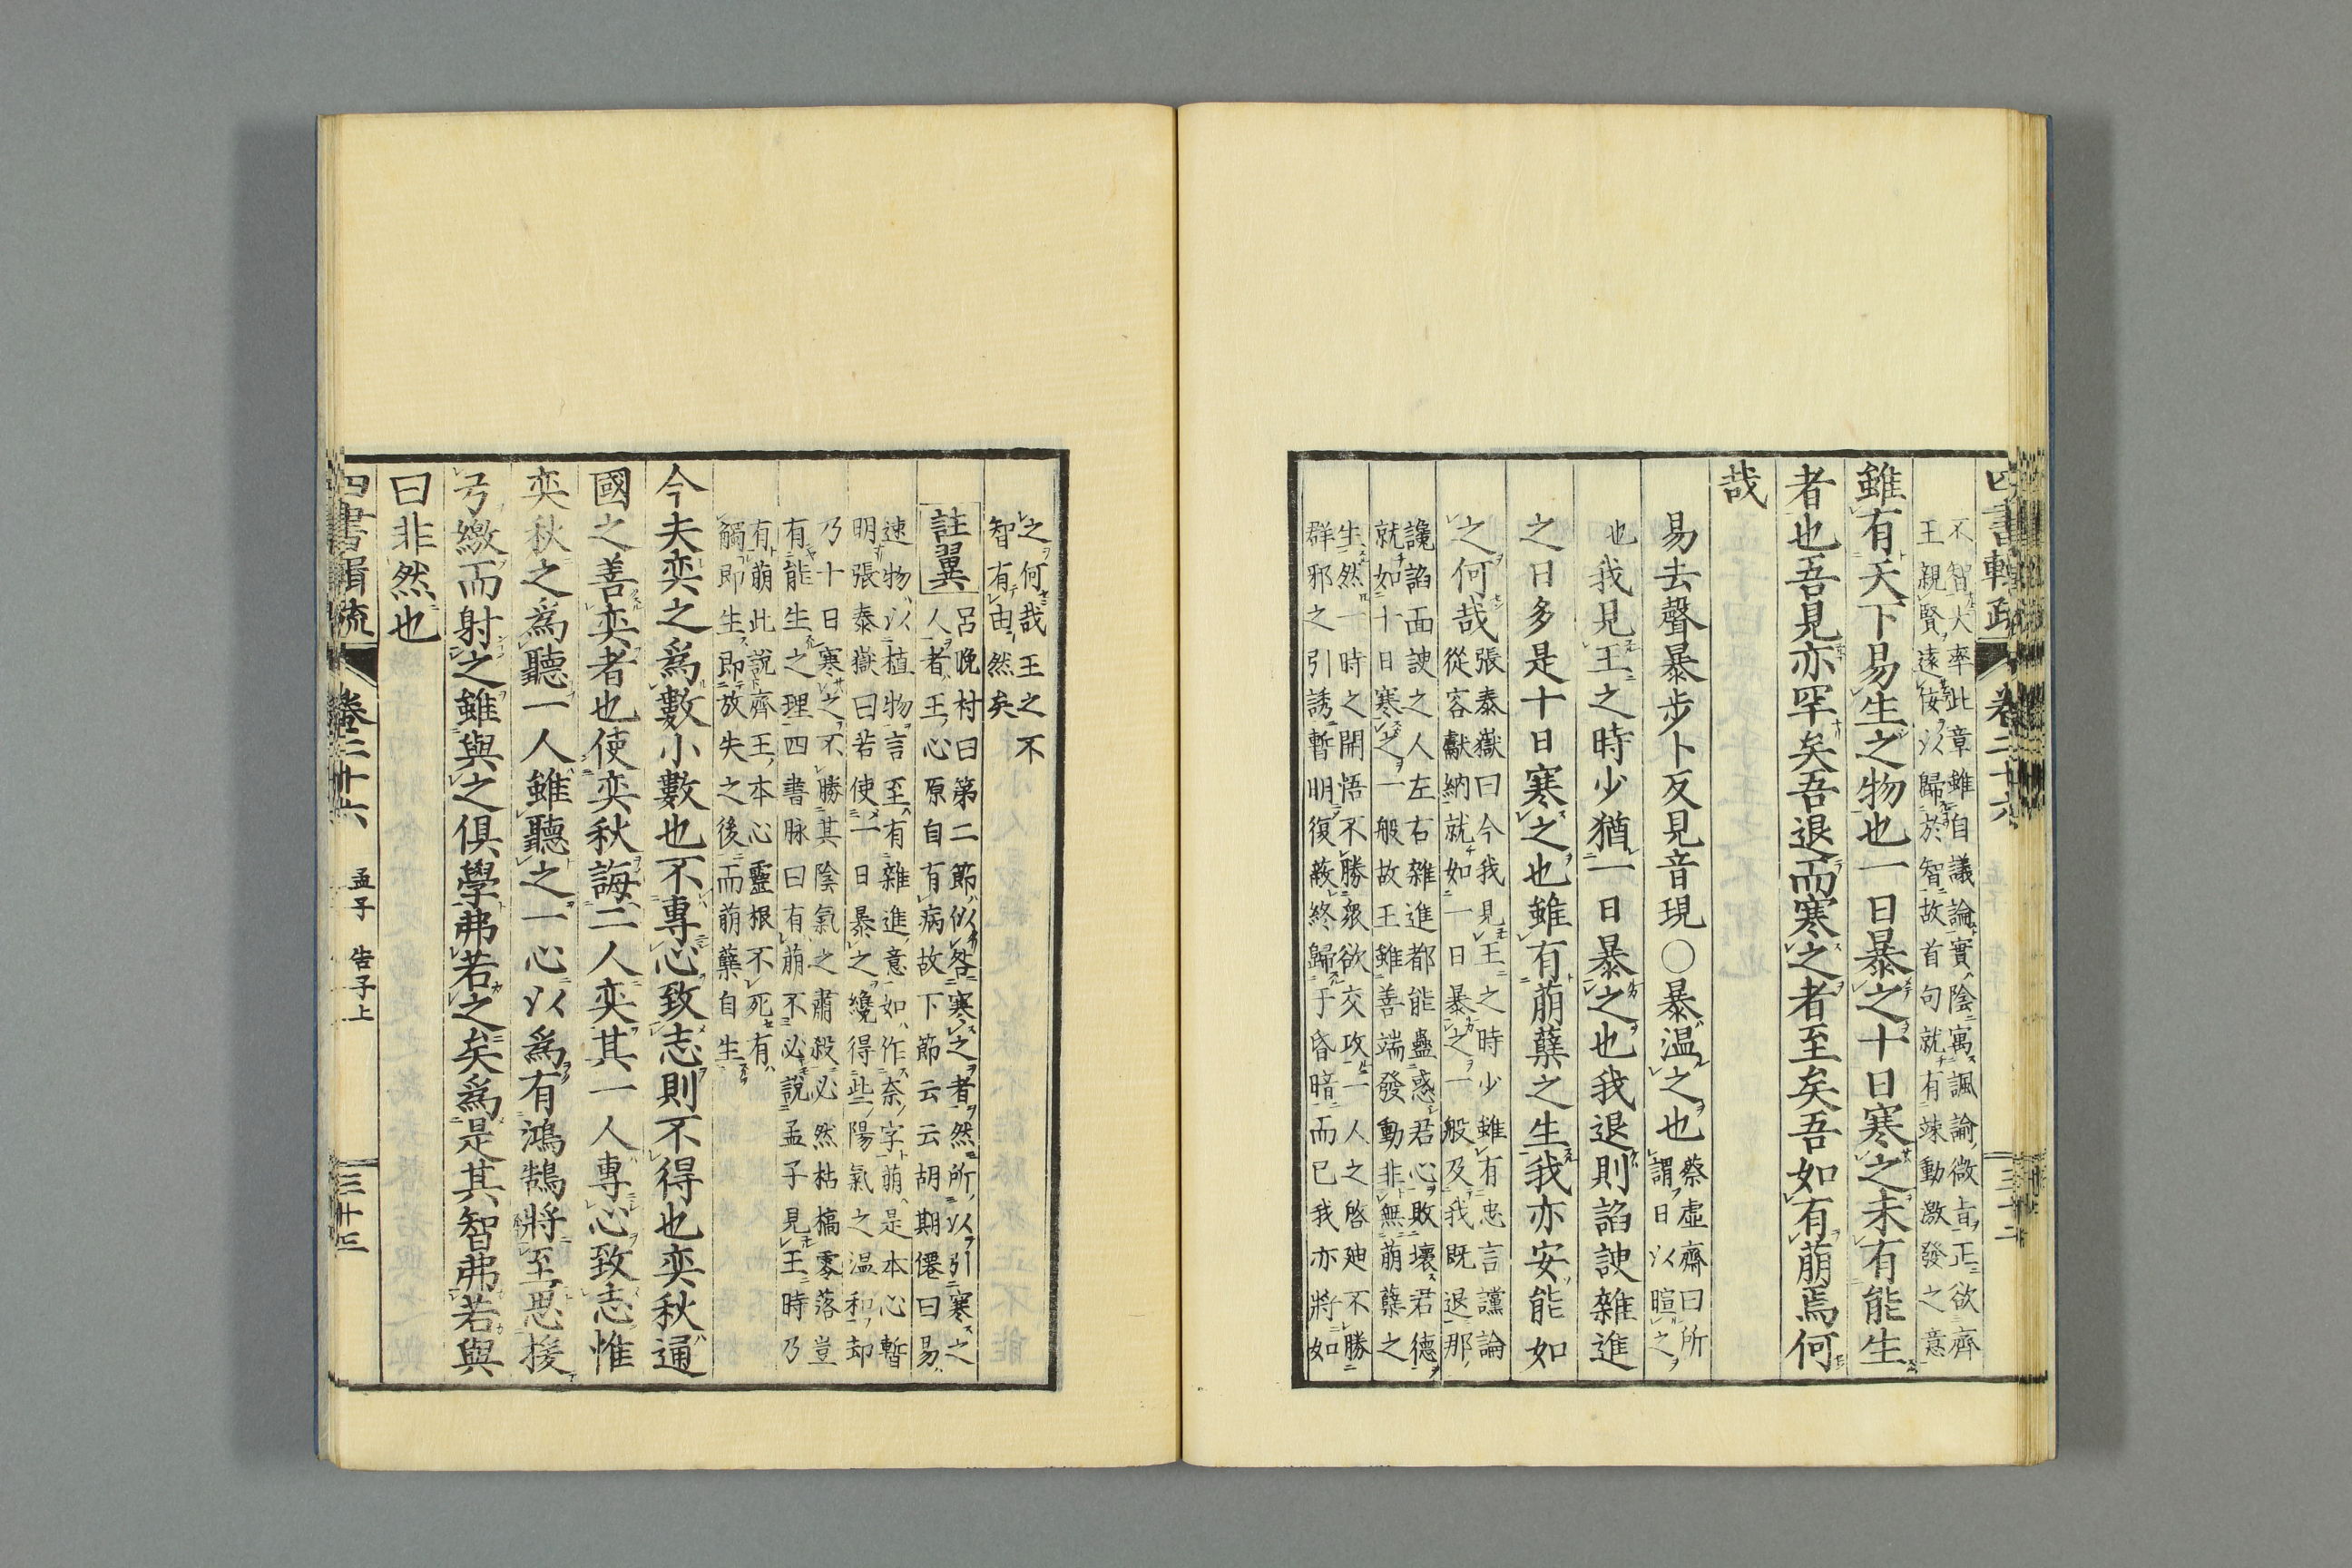 四書輯疏 卷二十六 三十二
不智大率此章雖自議論實陰寓諷諭微旨正欲齊
王親賢遠佞以歸於智故首句就有竦動激發之意
雖有天下易生之物也一日暴之十日寒之未有能生
者也吾見亦罕矣吾退而寒之者至矣吾如有萌焉何
哉
易去聲暴步卜反見音現○暴溫之也
蔡虛齋曰所
謂日以暄之
也
我見王之時少猶一日暴之也我退則諂諛雜進
之日多是十日寒之也雖有萌蘖之生我亦安能如
之何哉
張泰嶽曰今我見王之時少雖有忠言讜論
從容獻納就如一日暴之一般及我既退那
讒諂面諛之人左右雜進都能蠱惑君心敗壞君德
就如十日寒之一般故王雖善端發動非無萌蘖之
生然一時之開悟不勝衆欲交攻一人之啓廸不勝
群邪之引誘暫明復蔽終歸于昏暗而已我亦將如
之何哉王之不
智有由然矣
註翼
呂晚村曰第二節似咎寒之者然所以引寒之
人者王心原自有病故下節云云胡期僊曰易
速物以植物言至有雜進意如作奈字萌是本心暫
明張泰嶽曰若使一日暴之纔得些陽氣之溫和却
乃十日寒之不勝其陰氣之肅殺必然枯槁零落豈
有能生之理四書脉曰有萌不必說孟子見王時乃
有萌此說齊王本心靈根不死有
觸即生即放失之後而萌蘖自生
今夫奕之爲數小數也不專心致志則不得也奕秋通
國之善奕者也使奕秋誨二人奕其一人專心致志惟
奕秋之爲聽一人雖聽之一心以爲有鴻鵠將至思援
弓繳而射之雖與之俱學弗若之矣爲是其智弗若與
曰非然也
四書輯疏 卷二十六 孟子 告子上 三十三